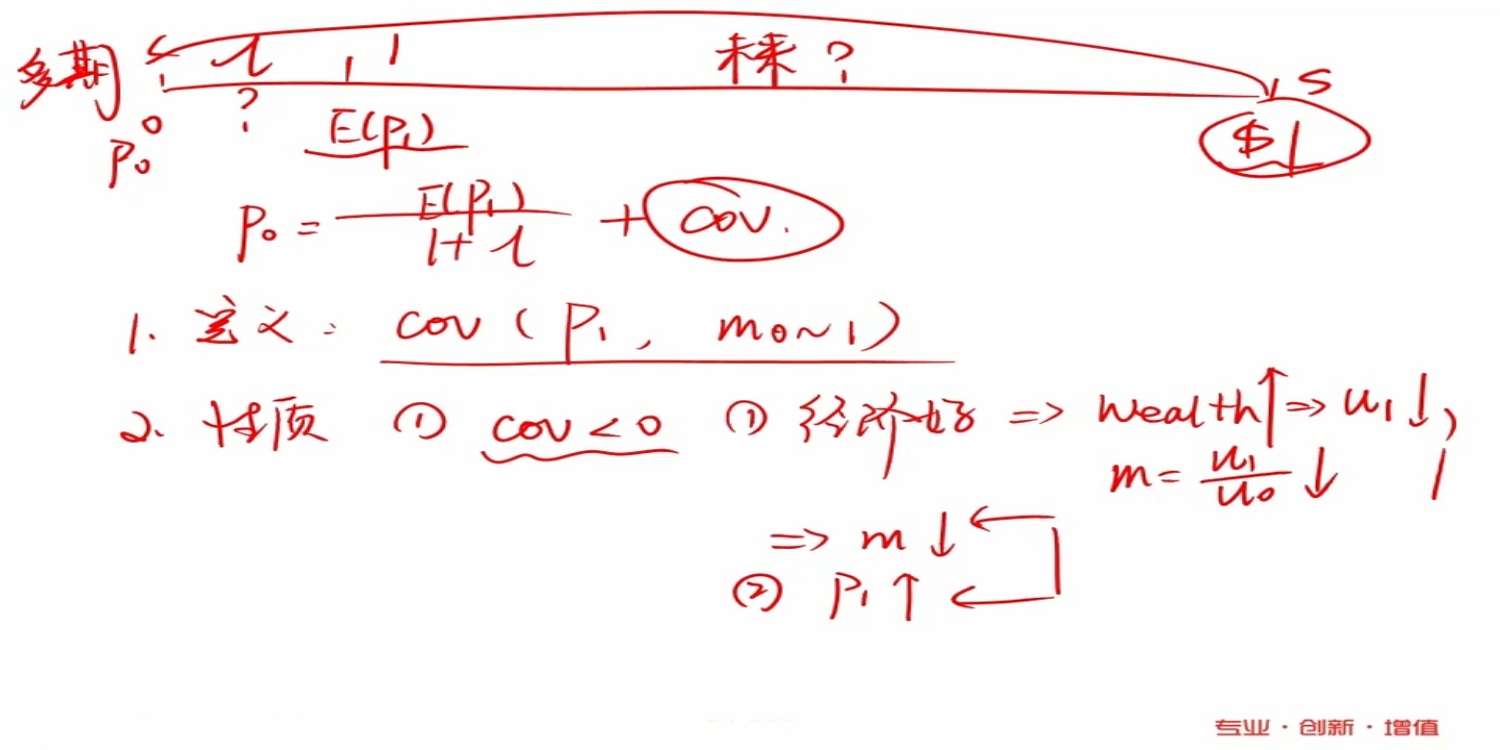 多期 l 1 未来? s
0 ? E(P₁) $1
P₀
P₀ = E(P₁) / 1+l + cov.
1. 定义: cov (P₁, m₀~₁)
2. 性质 ① cov<0 ① 经济好 => wealth↑ => u₁↓,
m = u₁/u₀ ↓
=> m↓
② P₁↑
专业·创新·增值